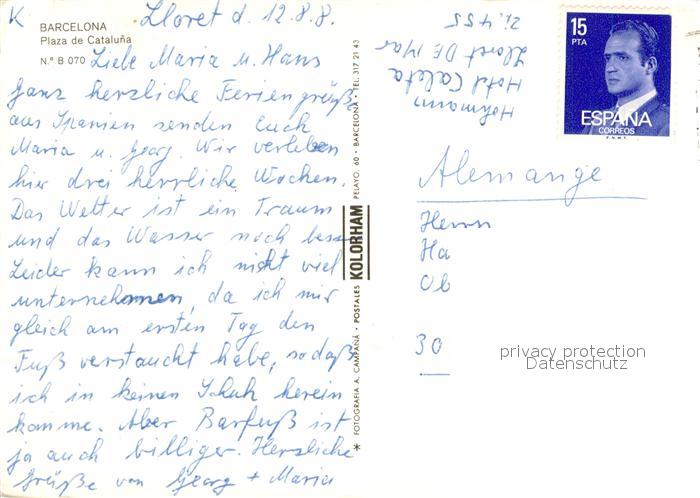 K
BARCELONA
Plaza de Cataluña
N.º B 070
Lloret d. 12.8.8.
Liebe Maria u. Hans
ganz herzliche Feriengrüße
aus Spanien senden Euch
Maria u. Georg. Wir verleben
hier drei herrliche Wochen.
Das Wetter ist ein Traum
und das Wasser noch bess
Leider kann ich nicht viel
unternehmen, da ich mir
gleich am ersten Tag den
Fuß verstaucht habe, sodaß
ich in keinen Schuh herein
komme. Aber Barfuß ist
ja auch billiger. Herzliche
Grüße von Georg + Maria
* FOTOGRAFIA A. CAMPAÑA - POSTALES KOLORHAM PELAYO, 60 - BARCELONA - TEL. 317 21 43
Hohmann
Hotel Caleta
Lloret DE Mar
Zi. 455
15
PTA
ESPAÑA
CORREOS
F.N.M.T.
Alemange
Herrn
Ha
Ob
30
privacy protection
Datenschutz